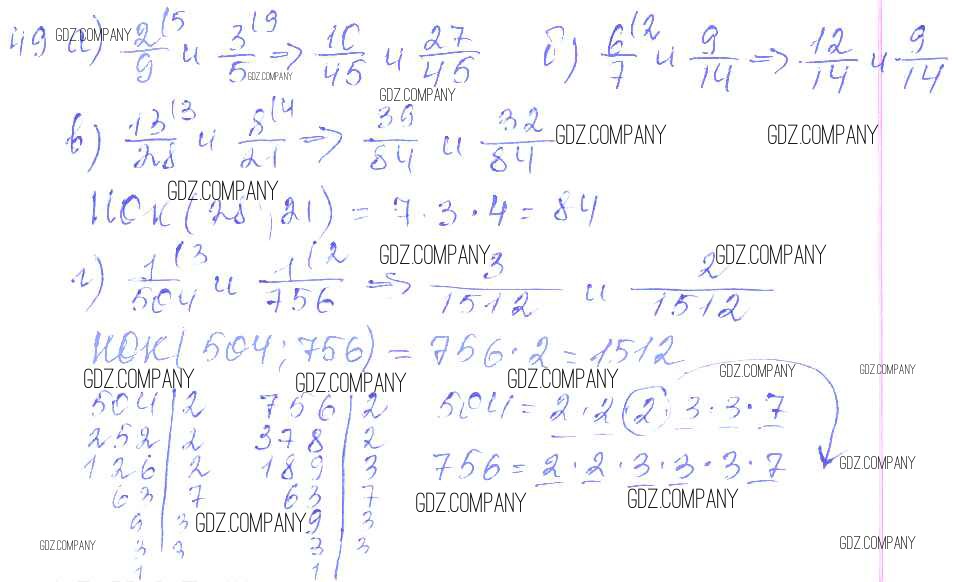 49 а) 2/9 (5 и 3/5 (9 => 10/45 и 27/45 б) 6/7 (2 и 9/14 => 12/14 и 9/14
GDZ.COMPANY GDZ.COMPANY GDZ.COMPANY
в) 13/28 (3 и 8/21 (4 => 39/84 и 32/84
GDZ.COMPANY GDZ.COMPANY GDZ.COMPANY
НОК (28; 21) = 7 · 3 · 4 = 84
г) 1/504 (3 и 1/756 (2 => 3/1512 и 2/1512
GDZ.COMPANY GDZ.COMPANY
НОК (504; 756) = 756 · 2 = 1512
GDZ.COMPANY GDZ.COMPANY GDZ.COMPANY GDZ.COMPANY GDZ.COMPANY
504 | 2 756 | 2 504 = 2 · 2 2 3 · 3 · 7
252 | 2 378 | 2
126 | 2 189 | 3 756 = 2 · 2 · 3 · 3 · 3 · 7 GDZ.COMPANY
63 | 7 63 | 7 GDZ.COMPANY GDZ.COMPANY
9 | 3 GDZ.COMPANY 9 | 3
GDZ.COMPANY 3 | 3 3 | 3 GDZ.COMPANY
1 1